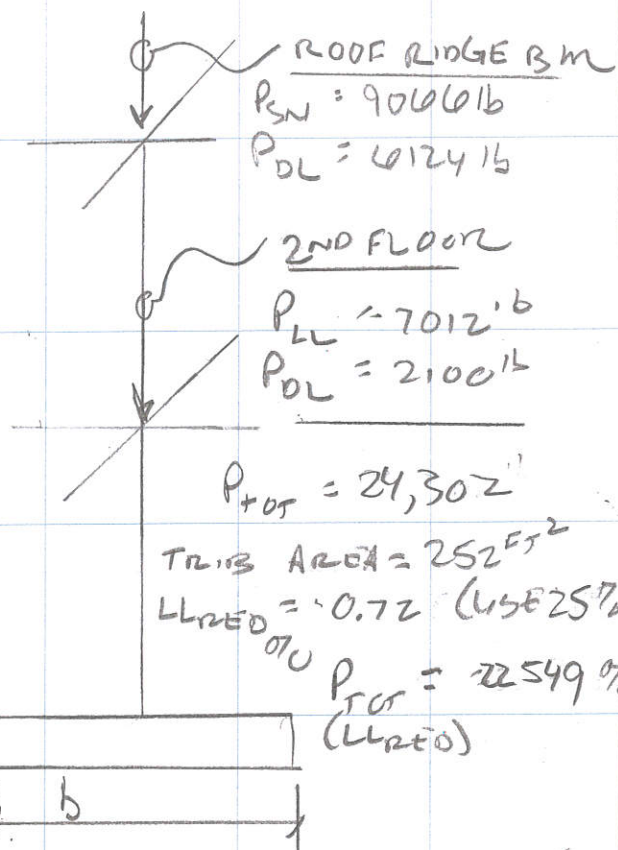 ROOF RIDGE BM
P_SN = 9066 lb
P_DL = 6124 lb
2ND FLOOR
P_LL = 7012 lb
P_DL = 2100 lb
P_TOT = 24,302"
TRIB AREA = 252 FT²
LL RED % = 0.72 (USE 25%
P_TOT = 22549
(LL RED)
b